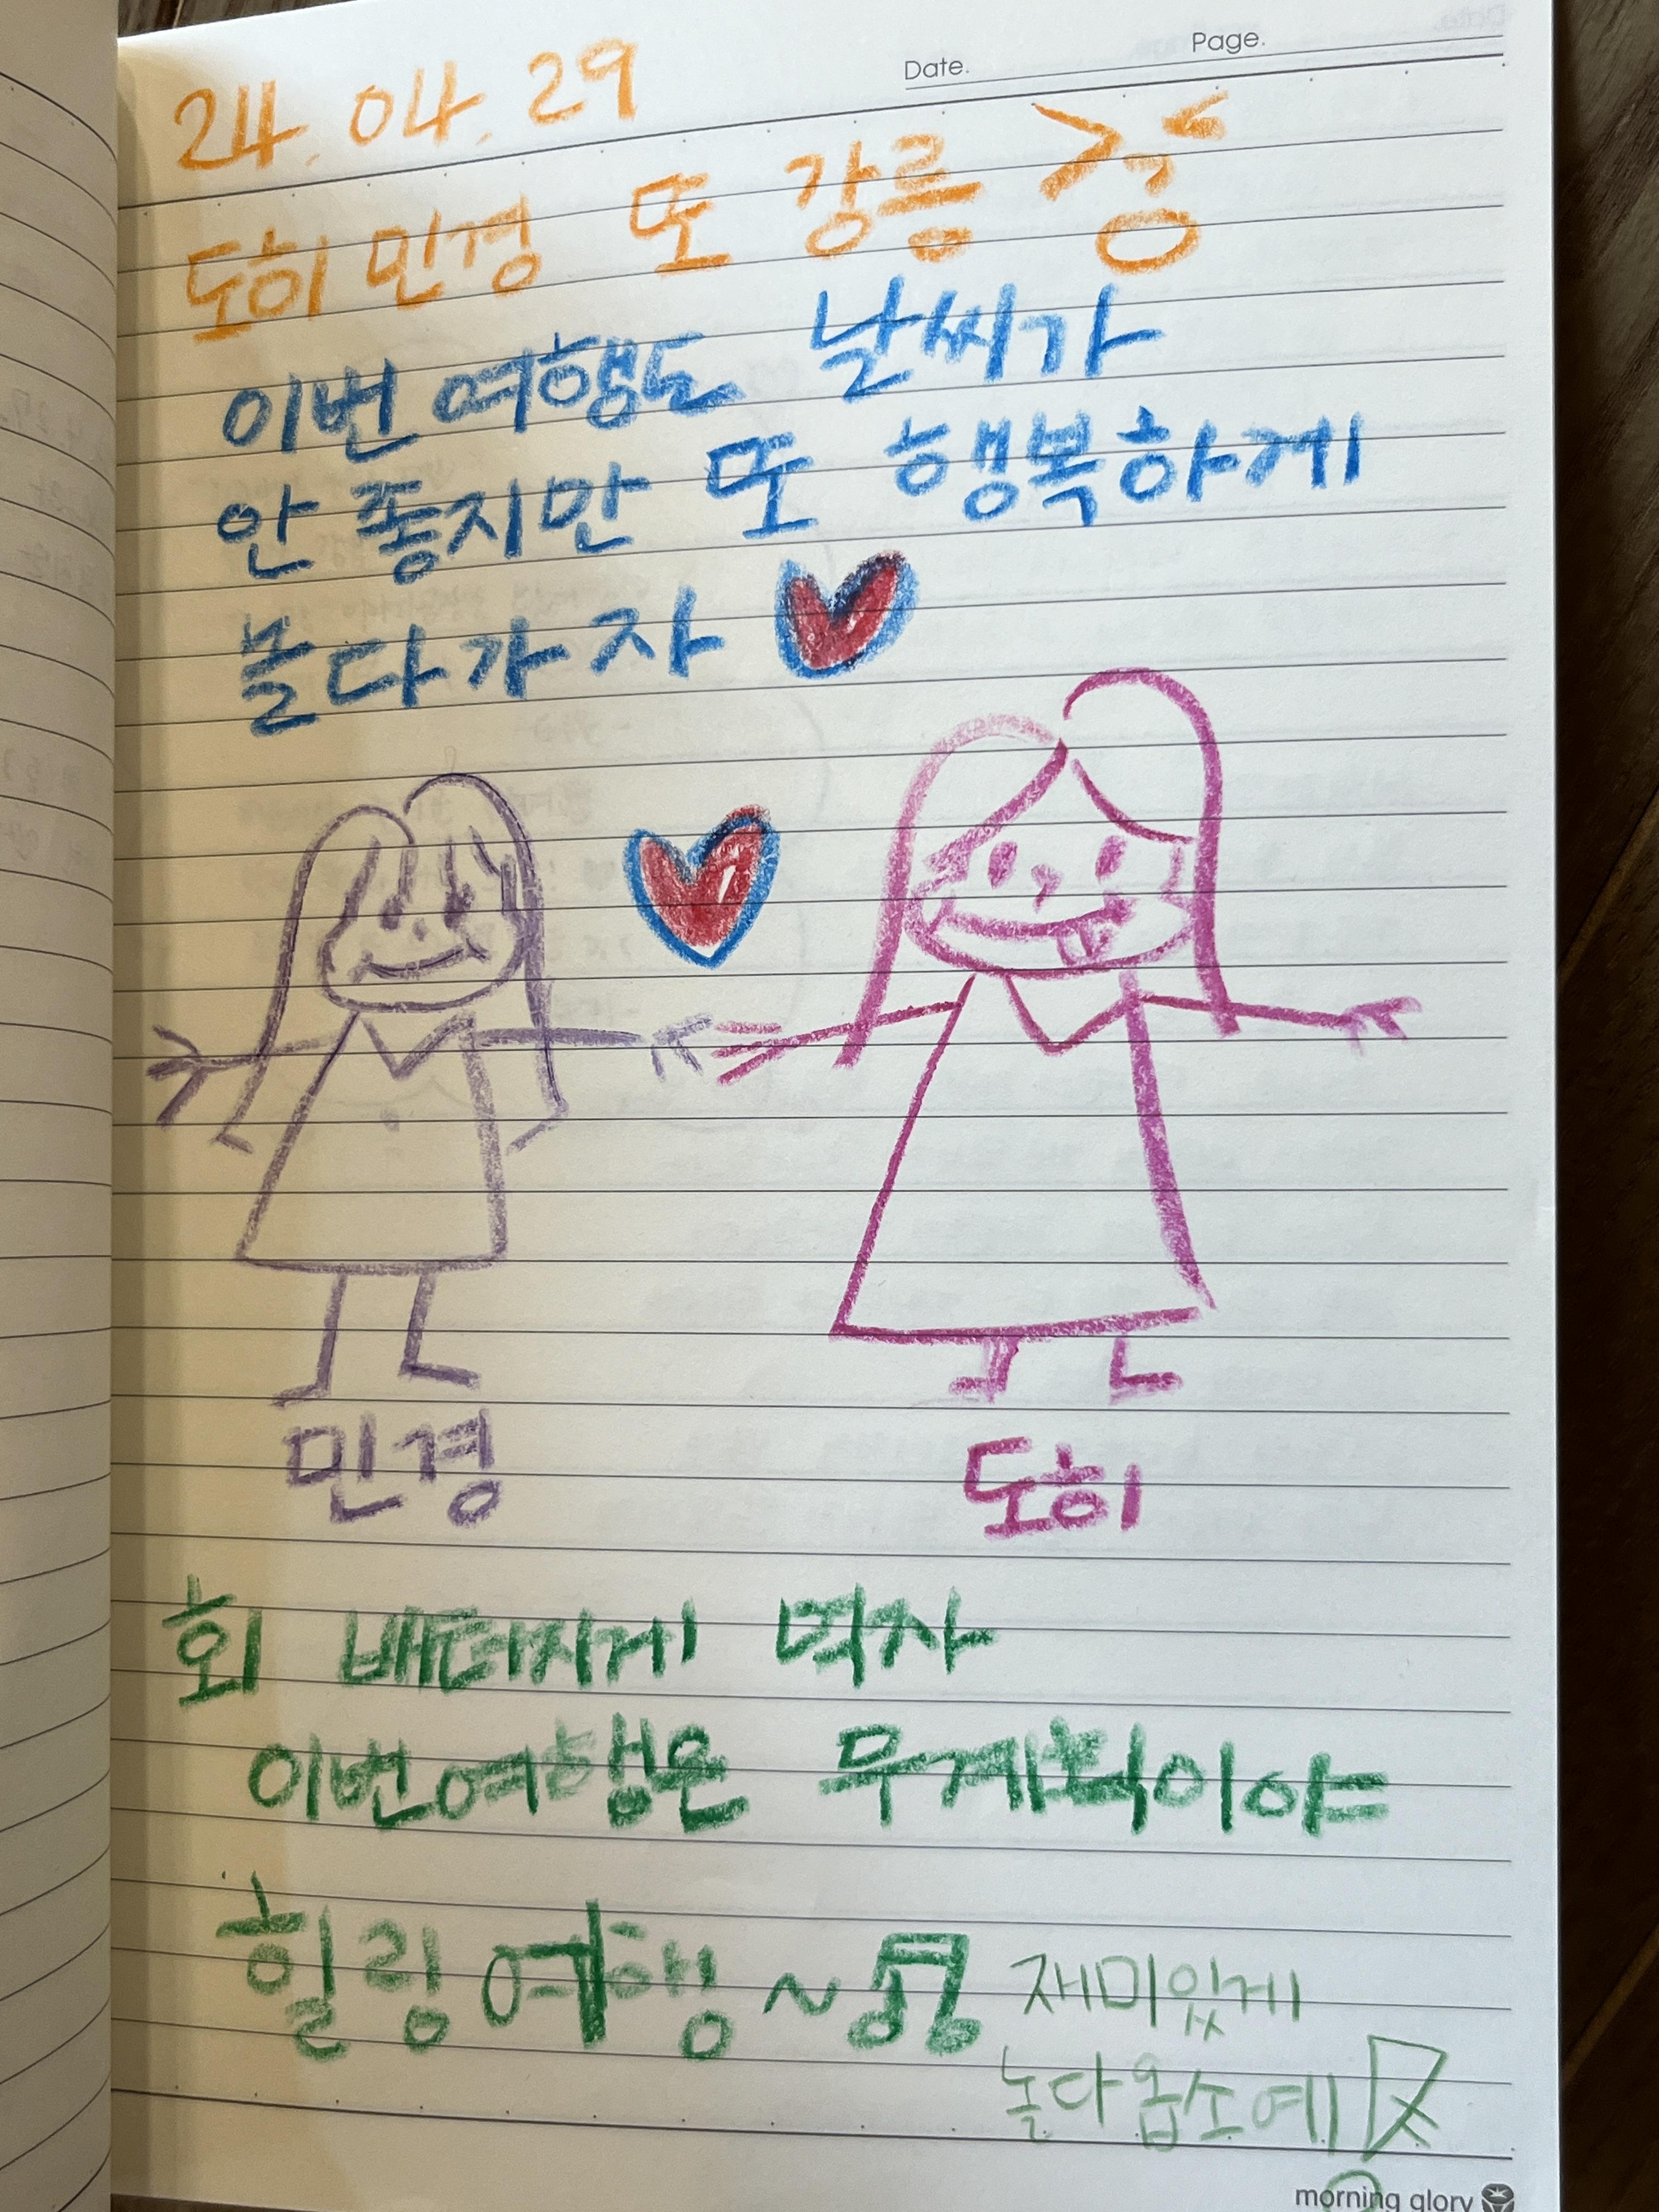 Page.
Date.
24. 04. 29
도히 민경 또 강릉 >_<
이번 여행도 날씨가
안 좋지만 또 행복하게
놀다가자
민경
도히
회 배터지게 먹자
이번여행은 무계획이야
힐링 여행~
재미있게
놀다 옵소예
morning glory